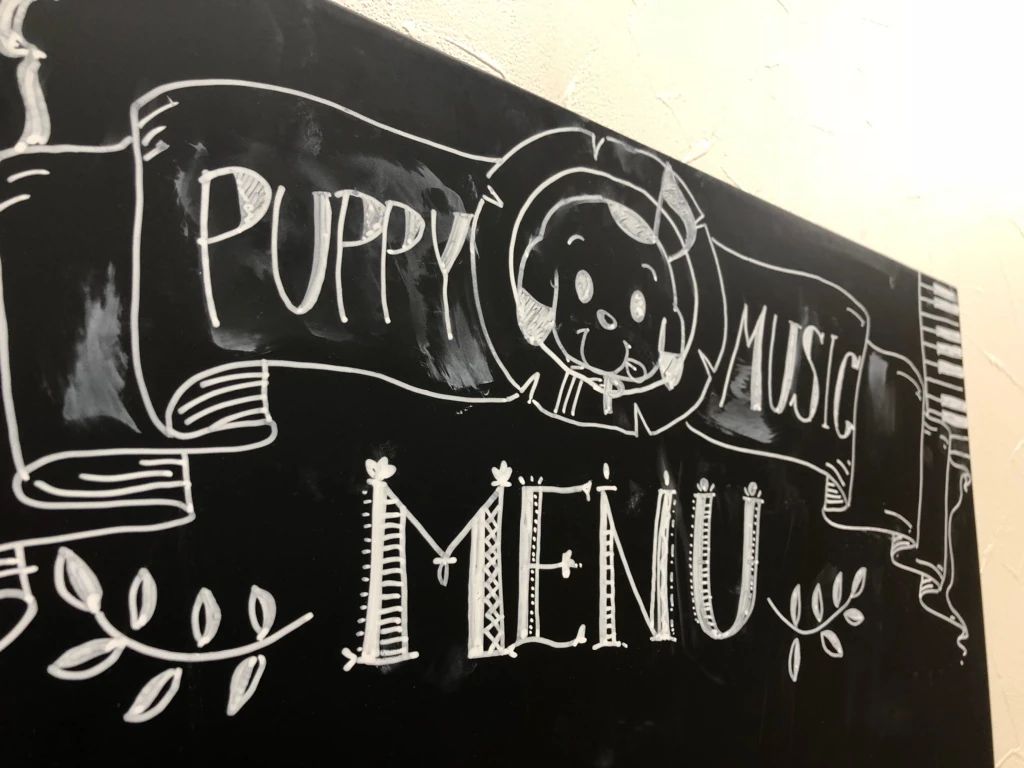 PUPPY MUSIC
MENU